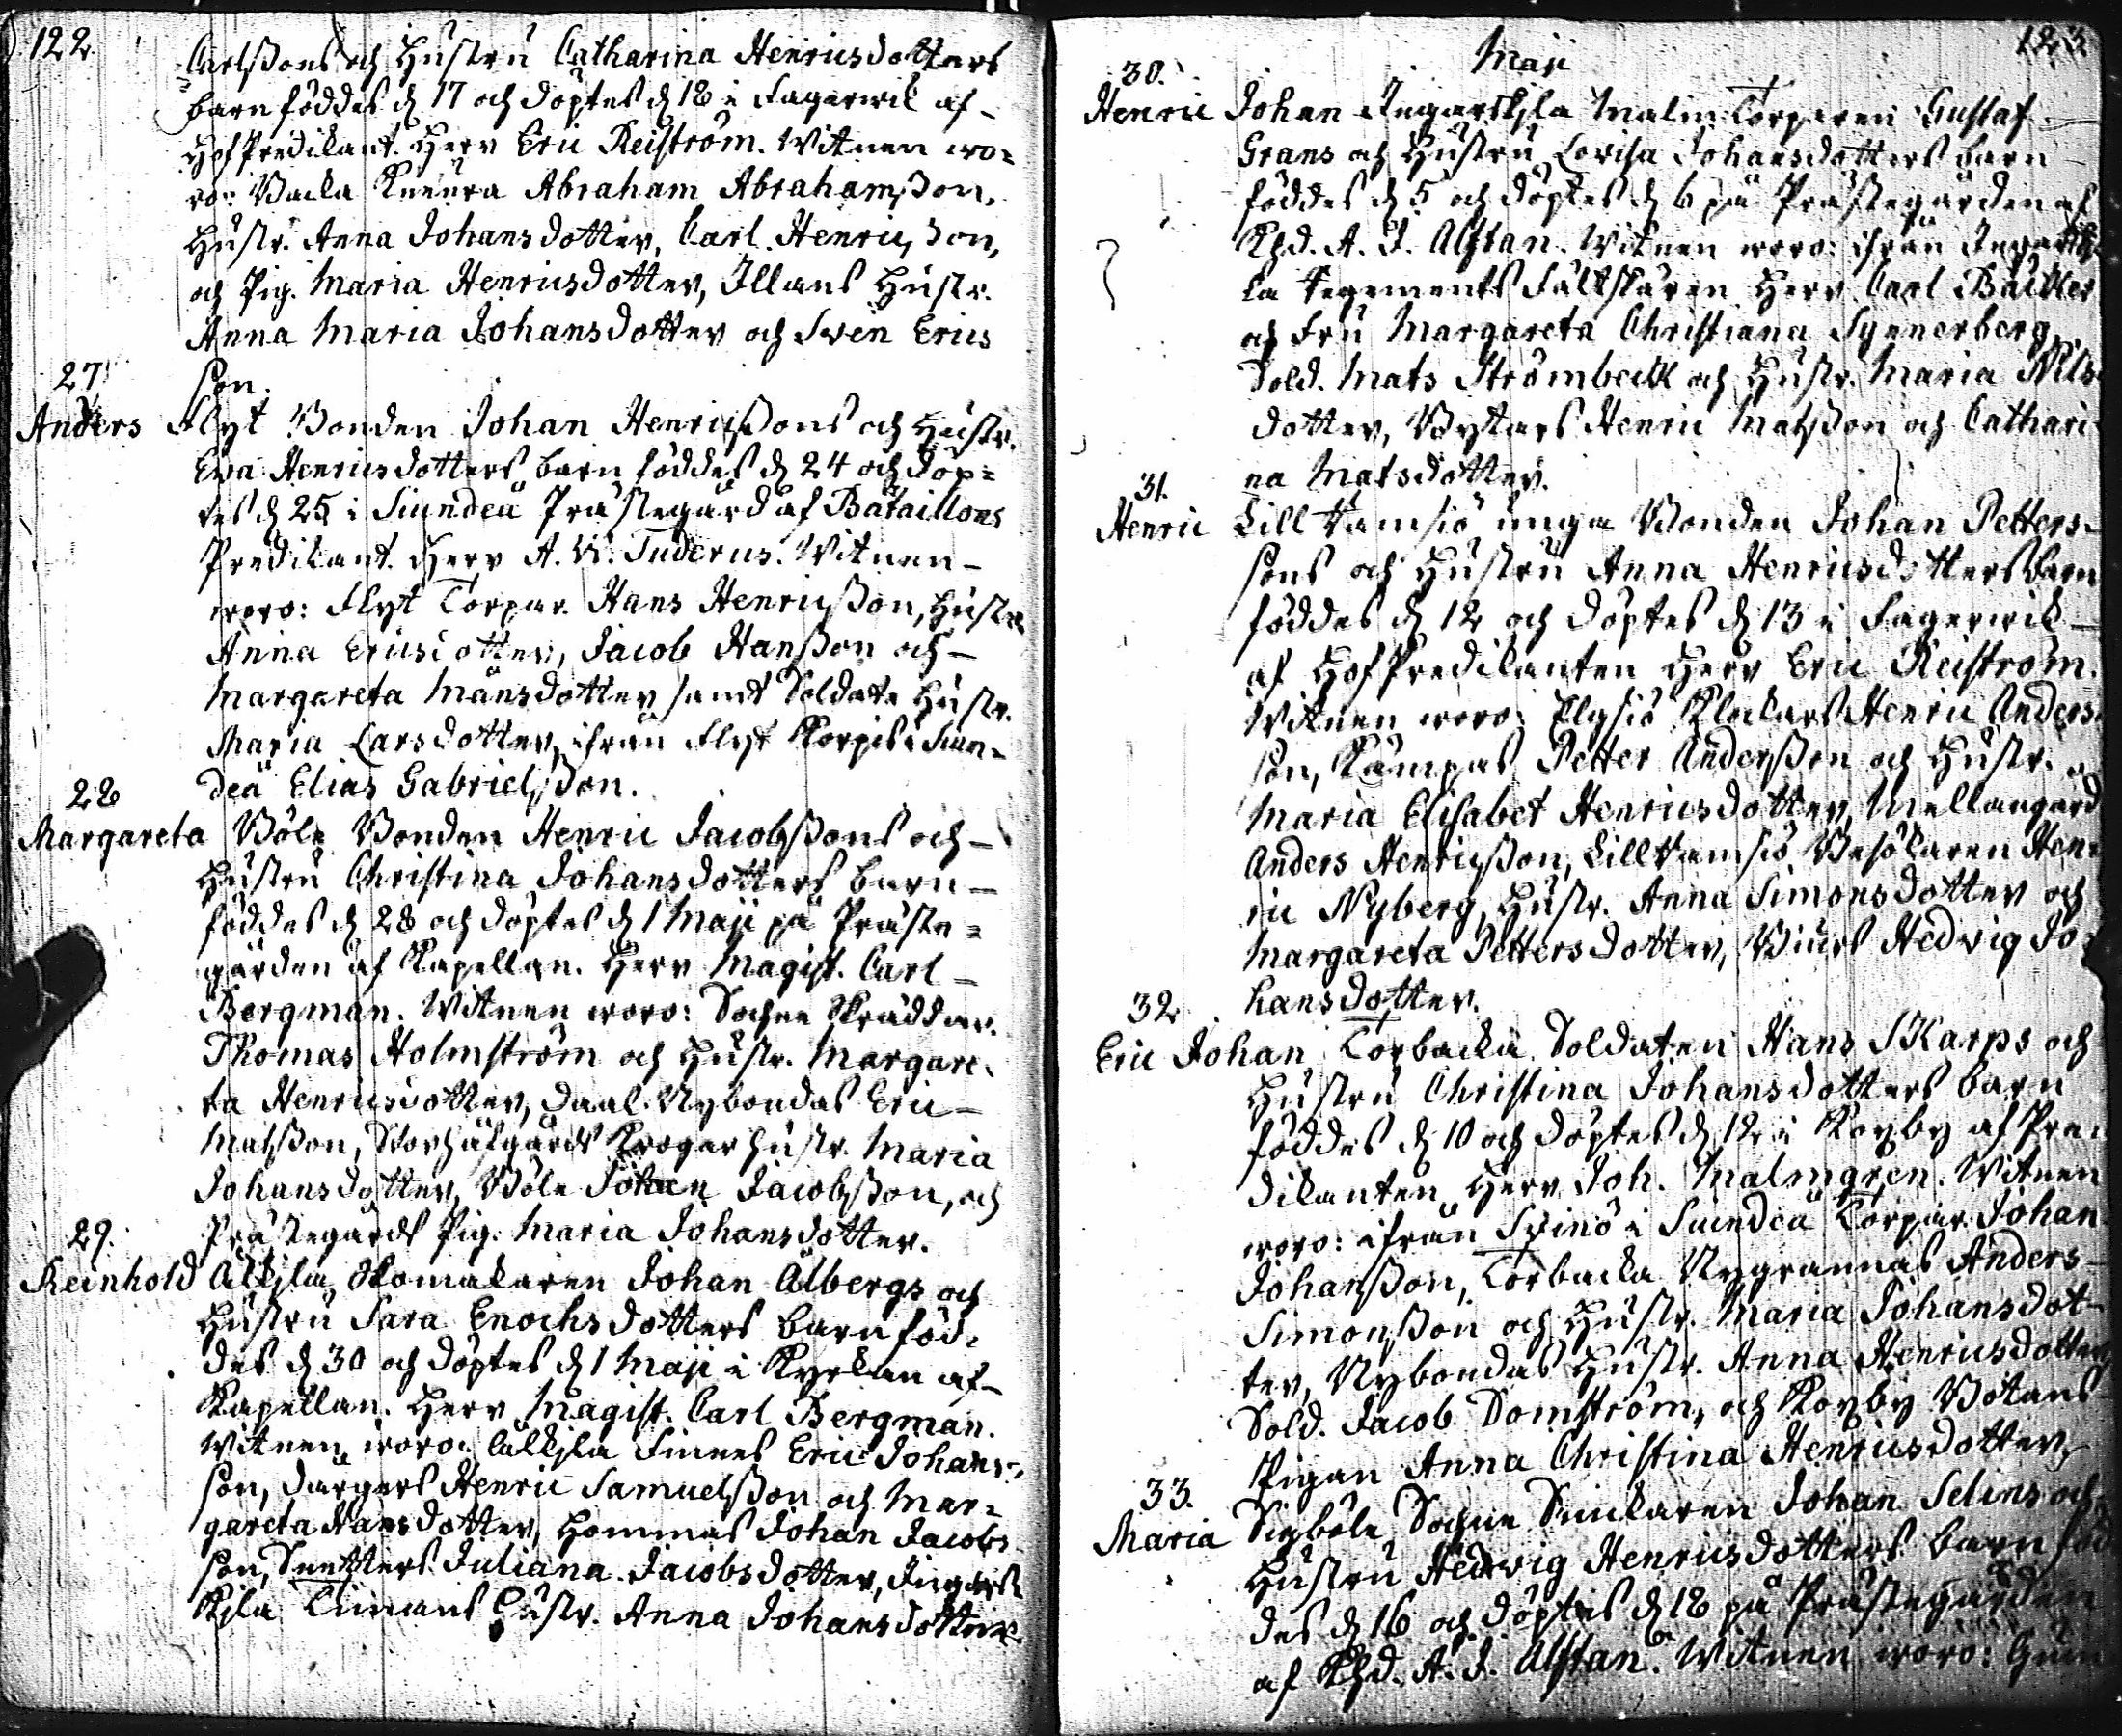 122
Carlssons och Hustru Catharina Henricsdotters
barn föddes d. 17 och döptes d. 18 i Fagerwik af
HofPredikant. Herr Eric Reiström. Witnen wo=
ro: Backa Abraham Abrahamsson,
Hustr. Anna Johansdotter, Carl Henricsson,
och Pig. Maria Henricsdotter, Hustr.
Anna Maria Johansdotter och Sven Erics
son.
27
Anders Flyt Bonden Johan Henricssons och Hustr.
Eva Henricsdotters barn föddes d. 24 och döp=
tes d. 25 i Siundeå Prästegård af Bataillons
Predikant. Herr A. W. Tuderus. Witnen
woro: Flyt Torpar. Hans Henricsson, Hustr.
Anna Ericsdotter, Jacob Hansson och
Margareta Månsdotter samt Soldate Hustr.
Maria Larsdotter, ifrån Flyt Korpis i Siun=
deå Elias Gabrielsson.
28
Margareta Böle Bonden Henric Jacobssons och
Hustru Christina Johansdotters barn
föddes d. 28 och döptes d. 1 Maji på Präste=
gården af Kapellan. Herr Magist. Carl
Bergman. Witnen woro: Sochne Skräddar.
Thomas Holmström och Hustr. Margare=
ta Henricsdotter, Daal. Nybondas Eric
Matsson, Krogar hustr. Maria
Johansdotter, Böle Johan Jacobsson, och
Prästegårds Pig. Maria Johansdotter.
29.
Reinhold Skomakaren Johan Ålbergs och
Hustru Sara Enochsdotters barn föd=
des d. 30 och döptes d. 1 Maji i Kyrkan af
Kapellan. Herr Magist. Carl Bergman.
Witnen woro: Finnes Eric Johans=
son, Henric Samuelsson och Mar=
gareta Hansdotter, Hommas Johan Jacobs
son, Juliana Jacobsdotter, Ingarsk
Kila Hustr. Anna Johansdotter.
123
Maji
30.
Henric Johan Ingarskila Malm Torparen Gustaf
Grans och Hustru Lovisa Johansdotters barn
föddes d. 5 och döptes d. 6 på Prästegården af
Khd. A. J. Alftan. Witnen woro: ifrån Ingarski
la Regements Fältskären Herr Carl Bäckler
och Fru Margareta Christiana Synnerberg,
Sold. Mats Strömbeck och Hustr. Maria Nils
dotter, Bytars Henric Matsson och Cathari
na Matsdotter.
31.
Henric Lill Ramsiö unga Bonden Johan Petters=
sons och Hustru Anna Henricsdotters barn
föddes d. 12 och döptes d. 13 i Fagerwik
af HofPredikanten Herr Eric Reiström.
Witnen woro: Elgsiö Klockars Henric Anders
son, Kämpas Petter Andersson och Hustr.
Maria Elisabet Henricsdotter, Mellangård
Anders Henricsson, Lill Ramsiö Besökaren Hen=
ric Nyberg, Hustr. Anna Simonsdotter och
Margareta Pettersdotter, Hedvig Jo=
hansdotter.
32
Eric Johan Torbacka Soldaten Hans Skarps och
Hustru Christina Johansdotters barn
föddes d. 10 och döptes d. 12 i Kåxby af Pre=
dikanten Herr Joh. Malmgren. Witnen
woro: ifrån Svinö i Siundeå Torpar. Johan
Johansson, Torbacka Nygrannas Anders
Simonsson och Hustr. Maria Johansdot=
ter, Nybondas Hustr. Anna Henricsdotter
Sold. Jacob Domström, och Kåxby Botans
Pigan Anna Christina Henricsdotter.
33.
Maria Sigböle Sochne Snickaren Johan Selins och
Hustru Hedvig Henricsdotters barn föd
des d. 16 och döptes d. 18 på Prästegården
af Khd. A. J. Alftan. Witnen woro: